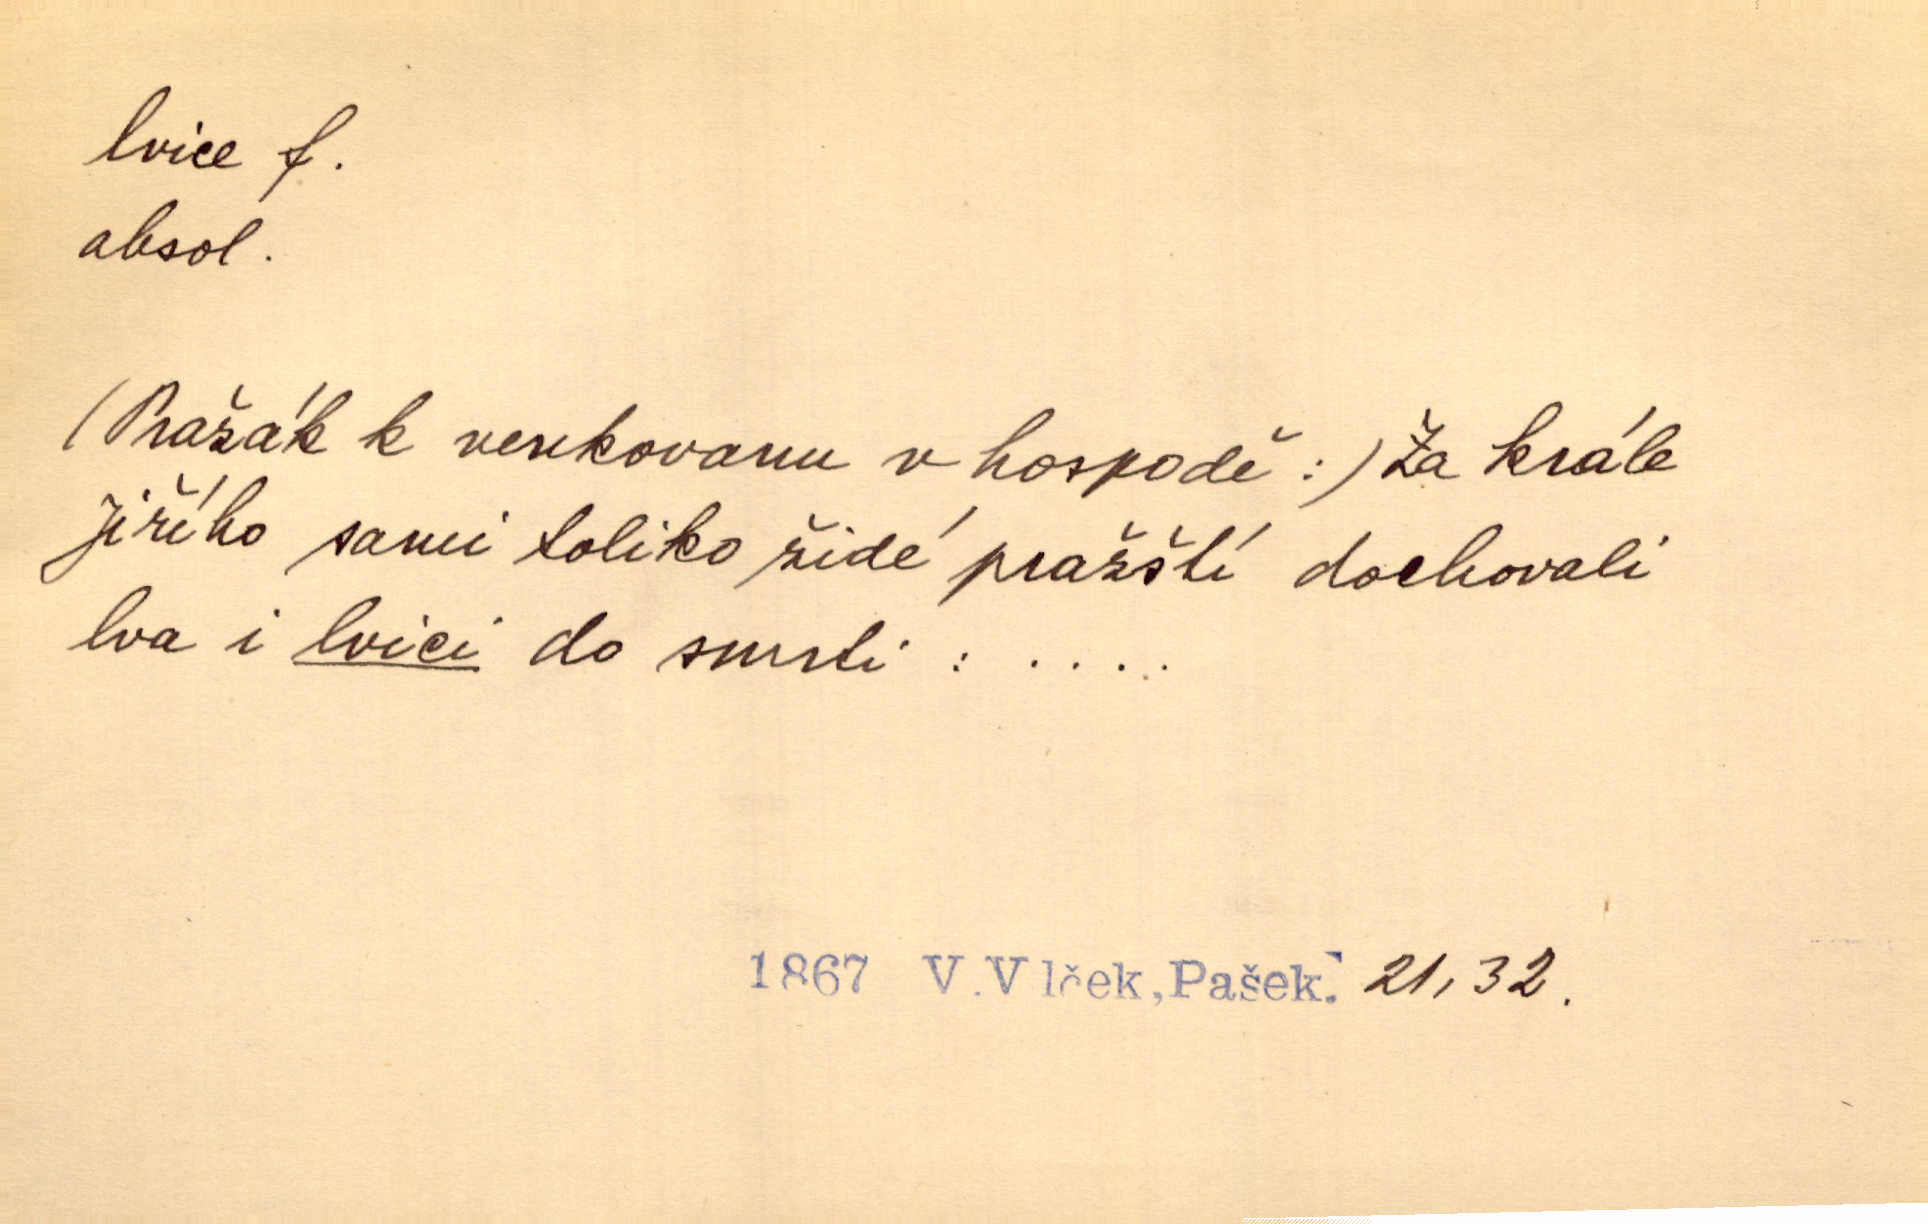 lvice f.
absol.
(Pražák k venkovanu v hospodě:) Za krále
Jiřího sami toliko židé pražští dochovali
lva i lvici do smrti : ....
1867 V.Vlček, Pašek. 21, 32.